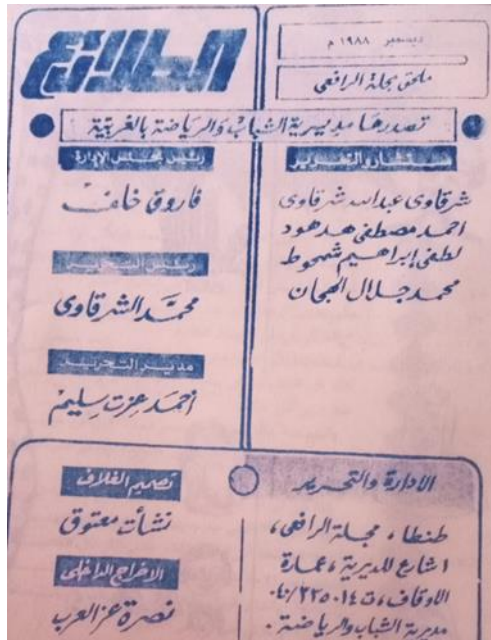 ديسمبر ١٩٨٨ م
ملحق مجلة الرافعى
الطلائع
تصدرها مديرية الشباب والرياضة بالغربية
مستشارو التحرير
شرقاوى عبدالله شرقاوى
احمد مصطفى هدهود
لطفى إبراهيم شحوط
محمد جلال الهجان
رئيس مجلس الإدارة
فاروق خلف
رئيس التحرير
محمد الشرقاوى
مدير التحرير
أحمد عزت سليم
الادارة والتحرير
طنطا، مجلة الرافعى،
١ شارع المديرية، عمارة
الاوقاف، ت ٠٤٠/٣٣٥٠١٤
مديرية الشباب والرياضة.
تصميم الغلاف
نشأت معتوق
الاخراج الداخلى
نصرة عز العرب